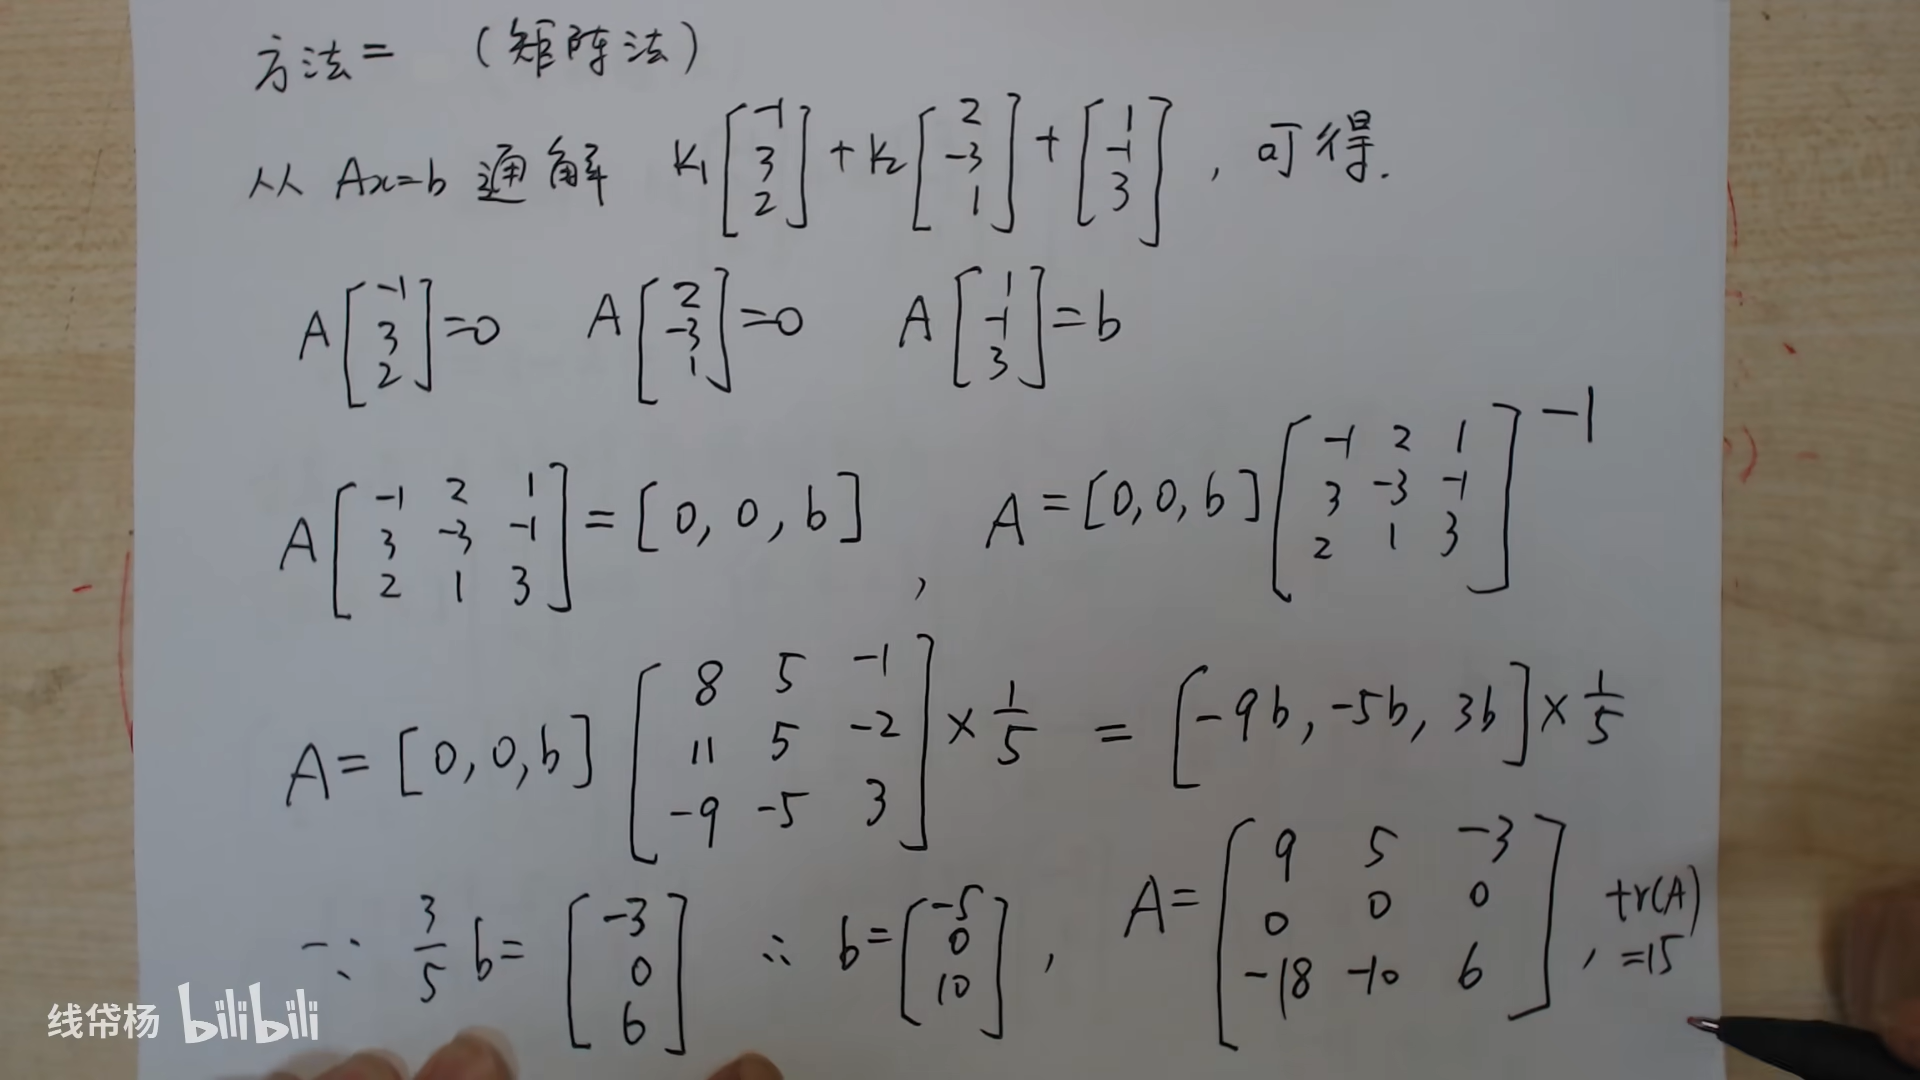 方法二 (矩阵法)
从 Ax=b 通解 K₁[-1 3 2] + K₂[2 -3 1] + [1 -1 3], 可得.
A[-1 3 2]=0 A[2 -3 1]=0 A[1 -1 3]=b
A[-1 2 1; 3 -3 -1; 2 1 3] = [0, 0, b], A=[0,0,b][-1 2 1; 3 -3 -1; 2 1 3]⁻¹
A=[0,0,b][8 5 -1; 11 5 -2; -9 -5 3]×1/5 = [-9b, -5b, 3b]×1/5
∵ 3/5 b=[-3 0 6] ∴ b=[-5 0 10], A=[9 5 -3; 0 0 0; -18 -10 6], tr(A)=15
线帒杨 bilibili